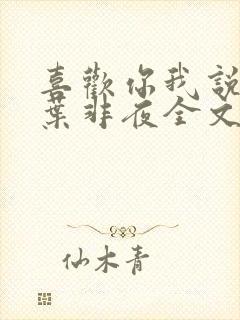 喜歡你我說
葉非夜全文
仙木青